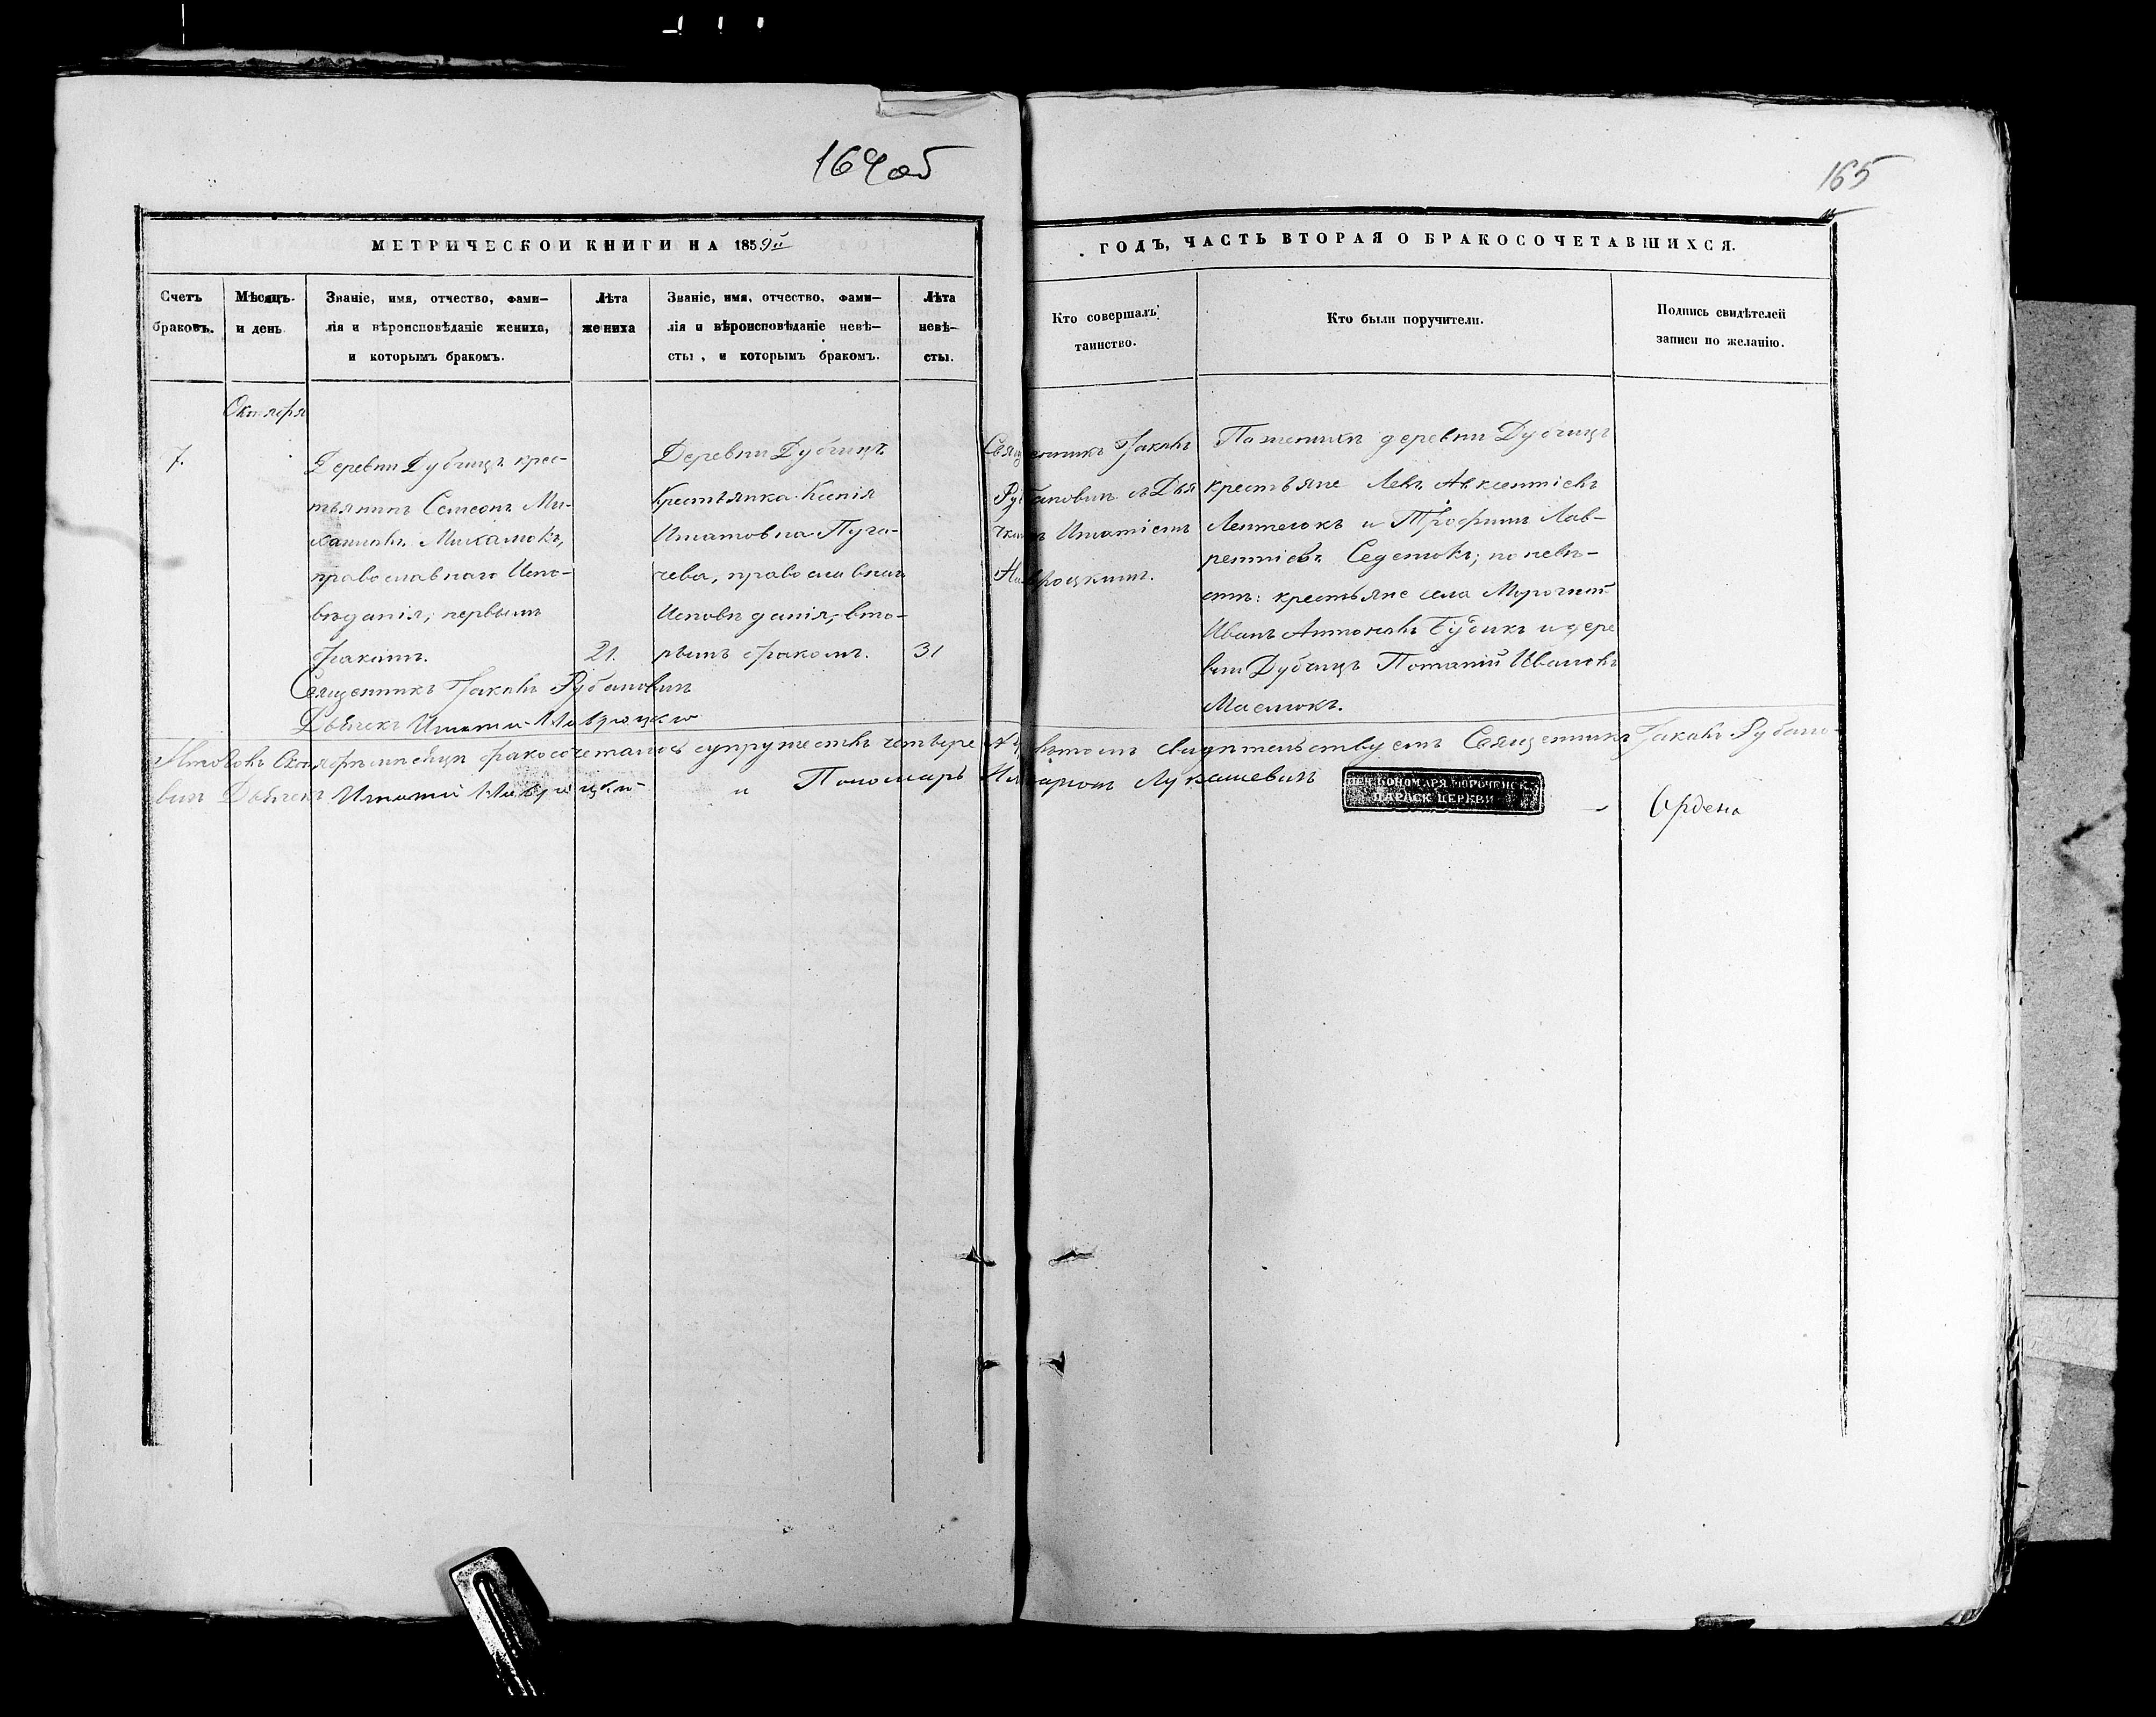 164об
165
МЕТРИЧЕСКОЙ КНИГИ НА 1859й
ГОДЪ, ЧАСТЬ ВТОРАЯ О БРАКОСОЧЕТАВШИХСЯ.
Счетъ
браковъ.
Мѣсяцъ
и день
Званіе, имя, отчество, фами–
лія и вѣроисповѣданіе жениха,
и которымъ бракомъ.
Лѣта
жениха
Званіе, имя, отчество, фами–
лія и вѣроисповѣданіе невѣ–
сты, и которымъ бракомъ.
Лѣта
невѣ–
сты.
Кто совершалъ
таинство.
Кто были поручители.
Подпись свидѣтелей
записи по желанію.
Октября
7.
Деревни Дубчицъ крес-
тьянинъ Семеонъ Ми-
хаиловъ
православнаго Испо-
вѣданія, первымъ
бракомъ.
21.
Деревни Дубчицъ
Крестьянка Ксенія
Игнатовна Пуга-
чева, православнаго
Исповѣданія, вто-
рымъ бракомъ.
31
Священникъ Іаковъ
Рубановичъ съ Дья
чкомъ Игнатіемъ
Навроцкимъ.
По женихѣ деревни Дубчицъ
крестьяне Левъ Авксентіевъ
и Трофимъ Лав-
рентіевъ по невѣ-
стѣ: крестьяне села Морочной
Иванъ Антоновъ и дере
вни Дубчицъ Потапій Ивановъ
Священникъ Іаковъ Рубановичъ
Дьячекъ Игнатій Навроцкій
Итого въ Октябрѣ мѣсяцѣ бракосочеталось супружествъ четыре въ томъ свидѣтельствуемъ Священникъ Іаковъ Рубано-
вичъ Дьячекъ Игнатій Навроцкій и Пономарь Иларіонъ Лукашевичъ
ПЕЧ. ПОНОМАРЯ МОРОЧЕНСК.
ПАРАСК. ЦЕРКВИ